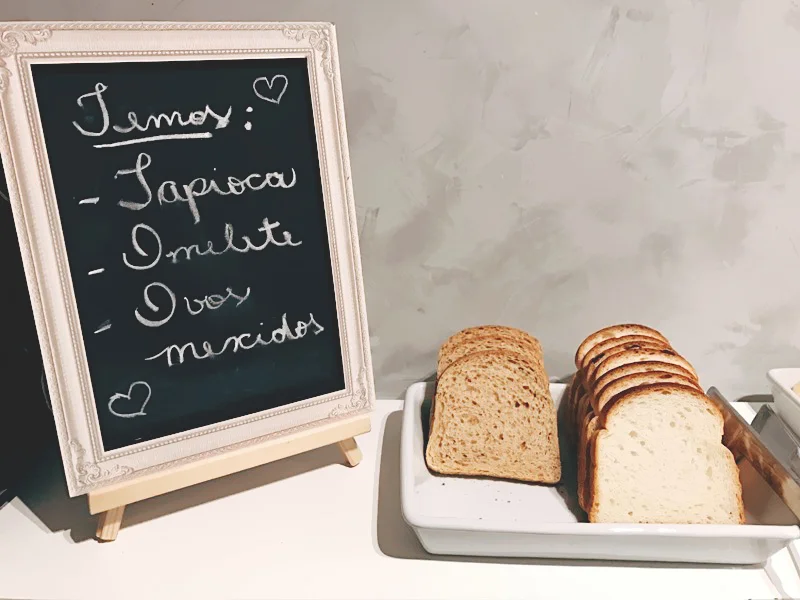 Temos:
- Tapioca
- Omelete
- Ovos
mexidos